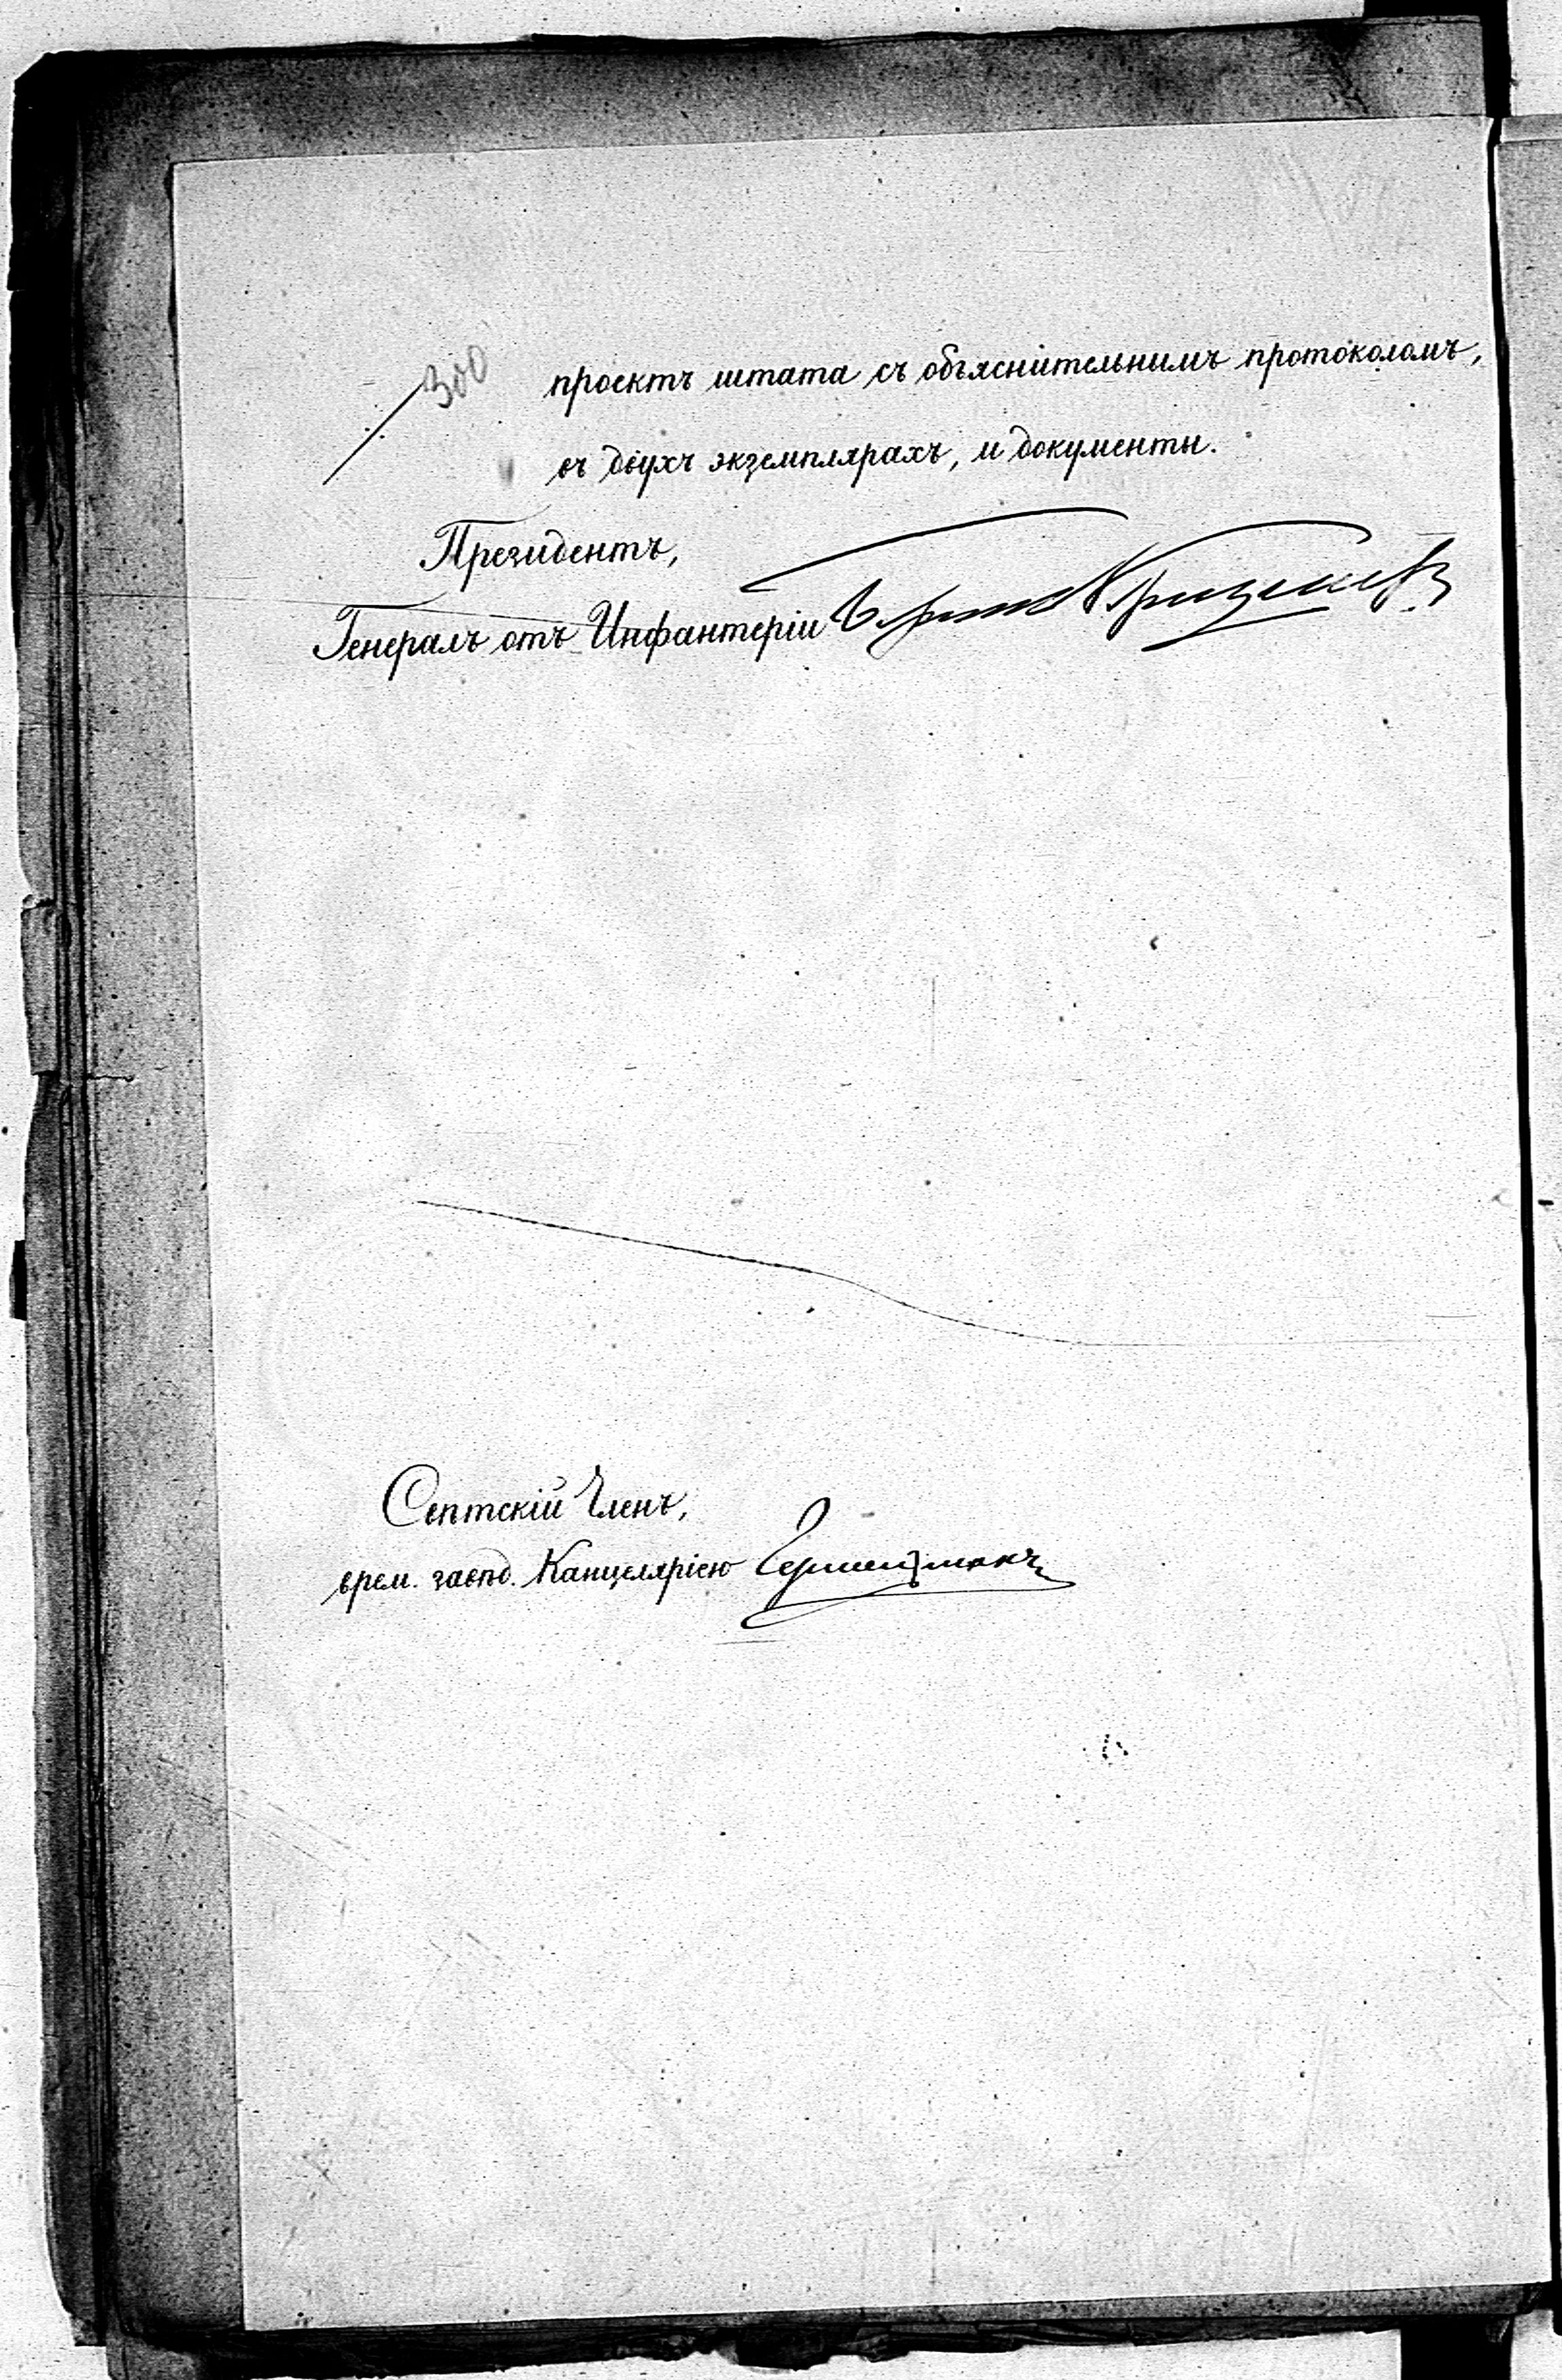 300
проектъ штата съ объяснительнымъ протоколомъ,
въ двухъ экземплярахъ, и документы.
Президентъ,
Генералъ отъ Инфантеріи
Совѣтскій Членъ,
врем. завѣд. Канцеляріею